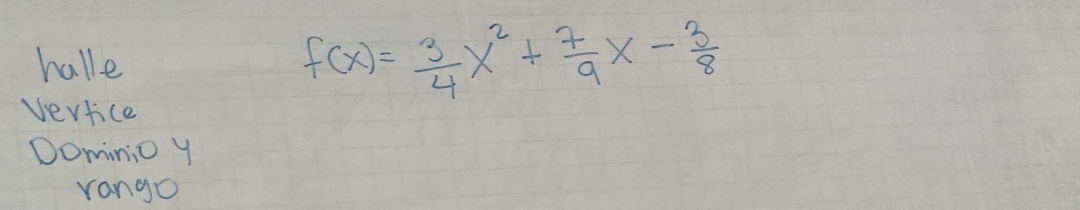 halle
Vertice
Dominio y
rango
f(x) = 3/4 x² + 7/9 x - 3/8